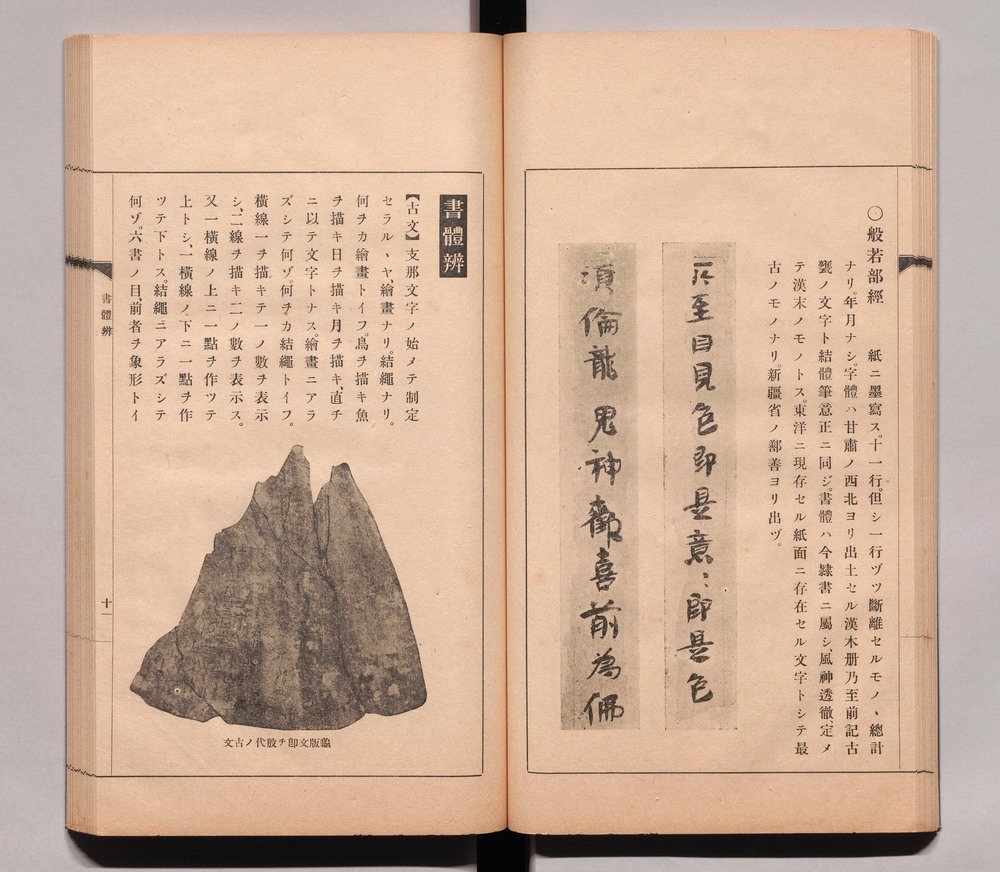 〇般若部經　紙ニ墨寫ス。十一行。但シ一行ヅツ斷離セルモノ、總計
ナリ。年月ナシ。字體ハ甘肅ノ西北ヨリ出土セル漢木册乃至前記古
甕ノ文字ト結體筆意正ニ同ジ。書體ハ今隷書ニ屬シ、風神透徹、定メ
テ漢末ノモノトス。東洋ニ現存セル紙面ニ存在セル文字トシテ最
古ノモノナリ。新疆省ノ鄯善ヨリ出ヅ。
至目見色即是意〻即是色
須倫龍鬼神歡喜前為佛
書體辨
【古文】支那文字ノ始メテ制定
セラルヽヤ、繪畫ナリ。結繩ナリ。
何ヲカ繪畫トイフ。鳥ヲ描キ魚
ヲ描キ日ヲ描キ月ヲ描キ、直チ
ニ以テ文字トナス。繪畫ニアラ
ズシテ何ゾ。何ヲカ結繩トイフ。
橫線一ヲ描キテ一ノ數ヲ表示
シ、二線ヲ描キ二ノ數ヲ表示ス。
又一橫線ノ上ニ一點ヲ作ツテ
上トシ、一橫線ノ下ニ一點ヲ作
ツテ下トス。結繩ニアラズシテ
何ゾ。六書ノ目、前者ヲ象形トイ
龜版文即チ殷代ノ古文
書體辨
十一